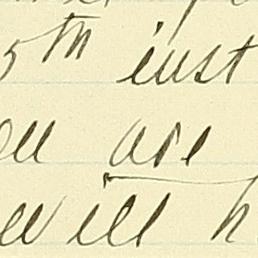 5th inst
ou are
will h